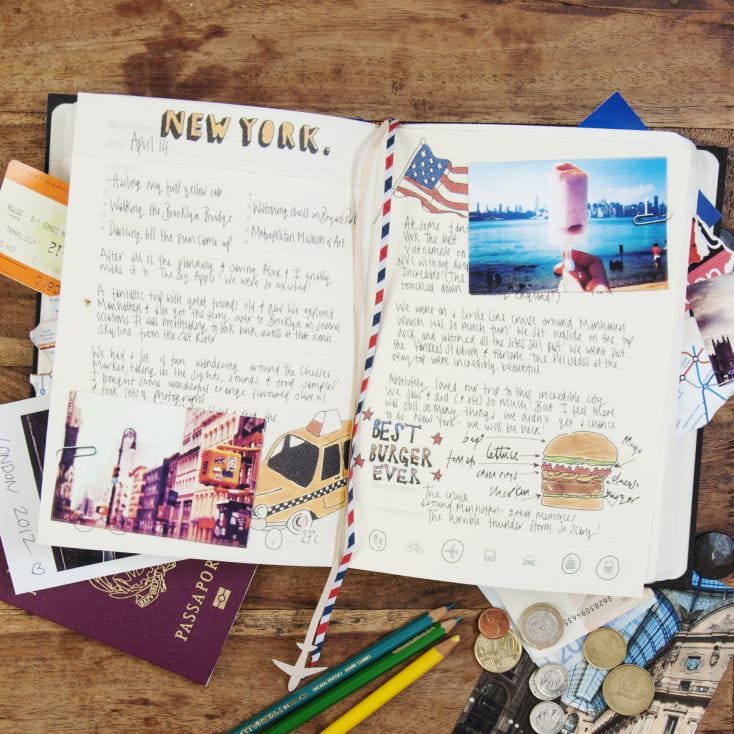 destination
NEW YORK.
date April 14
Hailing my first yellow cab
Walking the Brooklyn Bridge
Watching chess in Bryant Park
Dancing till the sun came up
Metropolitan Museum of Art
After all of the planning & saving Alex & I finally
made it to 'The Big Apple'! We were so excited!
A fantastic trip with great friends old & new. We explored
Manhattan & also got the ferry over to Brooklyn on several
occasions. It was breathtaking to look back across at that iconic
skyline from the East River
We had a lot of fun wandering around the Chelsea
Market, taking in the sights, sounds & food samples!
I bought some wonderful orange flavoured olive oil
& took lots of photographs
27°c
York. The best
Vietnamese
NYC without
Incredible! (This
touched down
England!)
We went on a Circle Line cruise around Manhattan
which was so much fun! We sat outside on the top
deck and watched all the sites sail past! We went past
the Yankees Stadium & Harlem. The Palisades at the
very top were incredibly beautiful
Absolutely loved our trip to this incredible city.
We saw & did (& ate) so much! But I feel there
was still so many things we didn't get a chance
to do New York - we will be back!
BEST
BURGER
EVER
lettuce
Mayo
onion rings
cheese
gherkin
burger
The cruise
around Manhattan - great memories
The horrible thunder storm. So scary!
LONDON 2012
PASSPORT